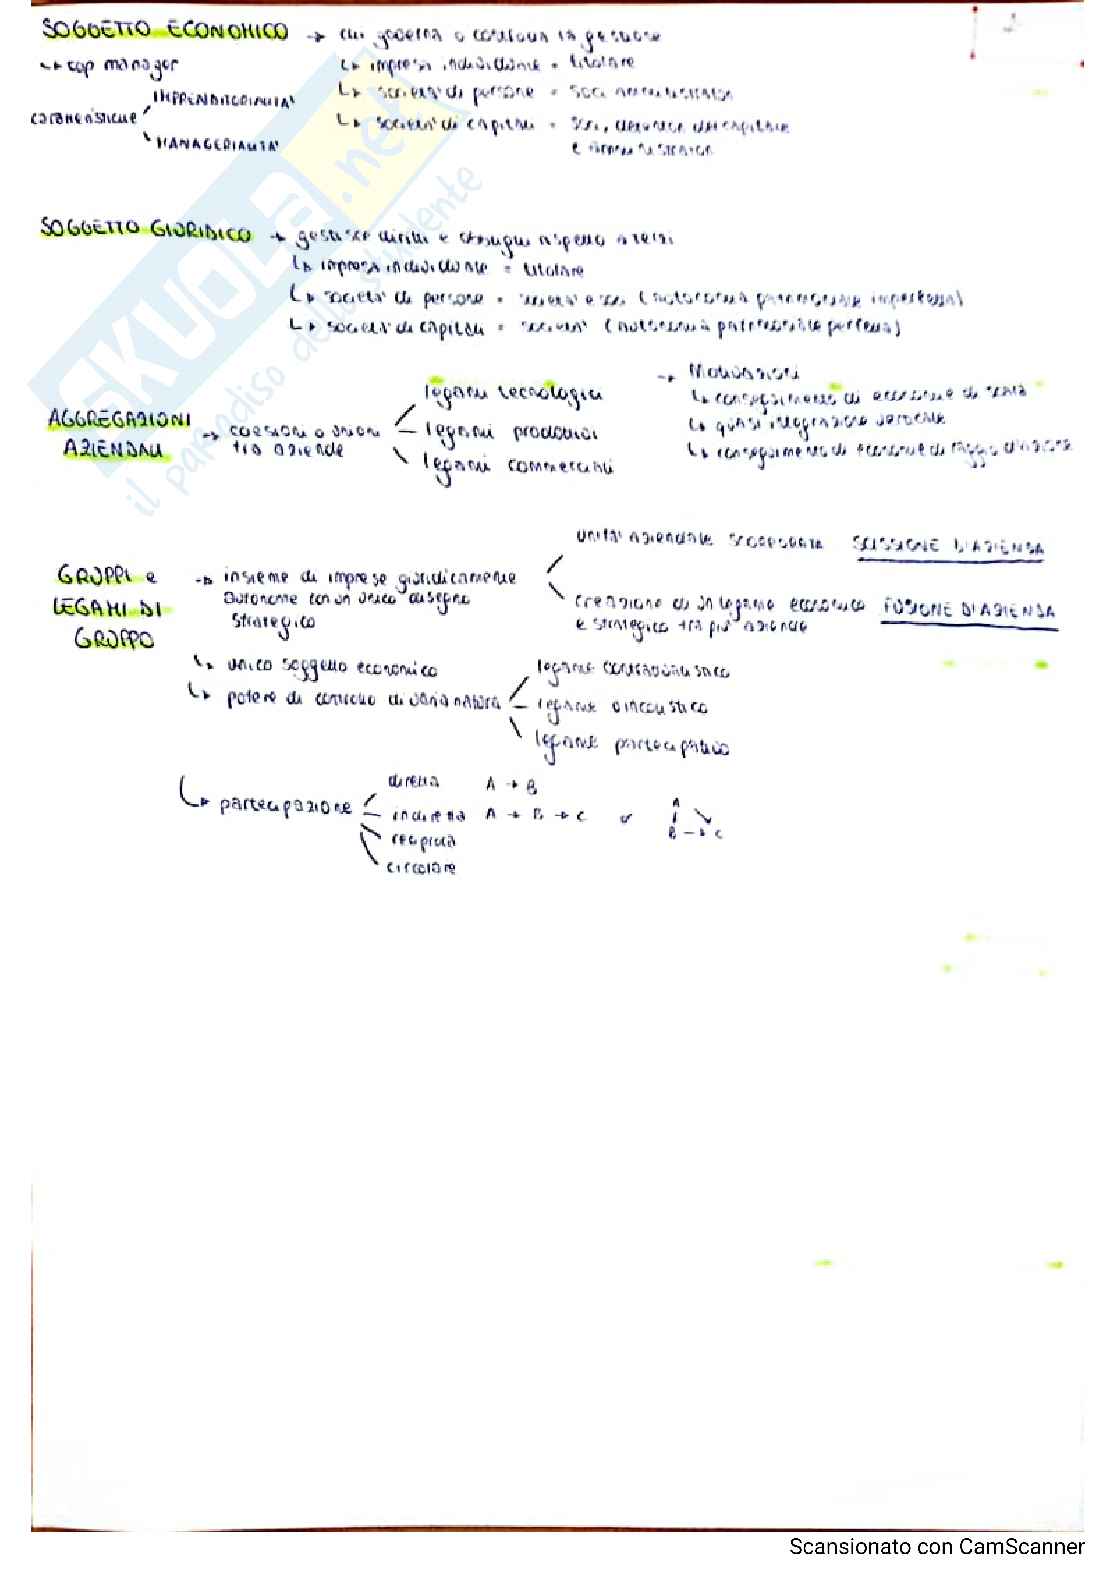 SOGGETTO ECONOMICO → chi governa o continua la gestione
↳ top manager
↳ impresa individuale = titolare
caratteristiche
IMPRENDITORIALITA'
MANAGERIALITA'
↳ societa' di persone = soci amministratori
↳ societa' di capitali = soci, detentori del capitale
e amministratori
SOGGETTO GIURIDICO → gestisce diritti e obblighi rispetto a terzi
↳ impresa individuale = titolare
↳ societa' di persone = societa' e soci (autonomia patrimoniale imperfetta)
↳ societa' di capitali = societa' (autonomia patrimoniale perfetta)
AGGREGAZIONI
AZIENDALI
→ coesioni o unioni
tra aziende
legami tecnologici
legami produttivi
legami commerciali
→ Motivazioni
↳ conseguimento di economie di scala
↳ quasi integrazione verticale
↳ conseguimento di economie di raggio d'azione
GRUPPI e
LEGAMI DI
GRUPPO
→ insieme di imprese giuridicamente
autonome con un unico disegno
strategico
unita' aziendale scorporata SCISSIONE D'AZIENDA
creazione di un legame economico FUSIONE D'AZIENDA
e strategico tra piu' aziende
↳ unico soggetto economico
↳ potere di controllo di varia natura
legame contrattualistico
legame vincolistico
legame partecipativo
↳ partecipazione
diretta A → B
indiretta A → B → C or A B → C
reciproca
circolare
SKUOLA.net
il paradiso dello studente
Scansionato con CamScanner